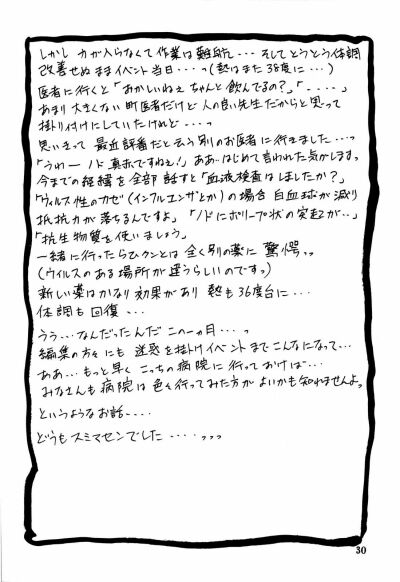 しかし 力が入らなくて作業は難航… そしてとうとう体調
改善せぬままイベント当日……っ(熱はまた38度に…)
医者に行くと「おかしいねぇ ちゃんと飲んでるの?」「‥‥」
あまり大きくない町医者だけど 人の良い先生だからと思って
掛り付けにしていたけれど…っ
思いきって 最近評番だと云う別のお医者に行きました…っ
「うわー ノド真赤ですねぇ!」ああ‥はじめて言われた気がします。
今までの経緯を全部話すと「血液検査はしましたか?」
「ウィルス性のカゼ(インフルエンザとか)の場合 白血球が減り
抵抗力が落ちるんですよ」「ノドにポリープ状の突起が‥」
「抗生物質を使いましょう」
一緒に行ったらひクンとは全く別の薬に 驚愕っっ
(ウィルスのある場所が違うらしいのですっ)
新しい薬はかなり効果があり 熱も36度台に…
体調も回復…
うぅ…なんだったんだ この一ヵ月…っ
編集の方々にも 迷惑を掛けイベントまでこんなになって…
ああ…もっと早く こっちの病院に行っておけば…
みなさんも病院は色々行ってみた方がよいかも知れませんよっ
というようなお話‥‥
どうもスミマセンでした‥‥っっっ
30